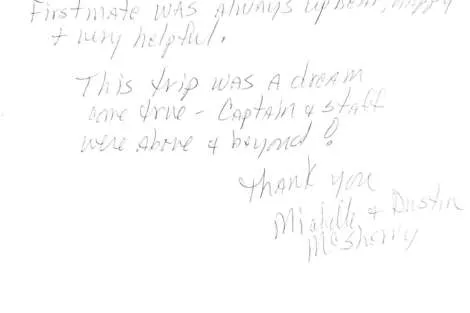 Firstmate was always upbeat, happy
& very helpful.
This trip was a dream
come true - Captain & staff
were above & beyond!
Thank you
Michelle & Dustin
McSherry